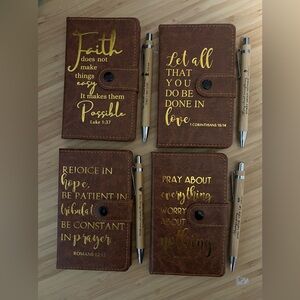 Faith
does not
make
things
easy
It makes them
Possible
Luke 1:37
Let all
THAT
YOU
DO BE
DONE IN
love
1 CORINTHIANS 16:14
REJOICE IN
hope,
BE PATIENT IN
tribulation
BE CONSTANT
IN prayer
ROMANS 12:12
PRAY ABOUT
everything
WORRY
ABOUT
nothing